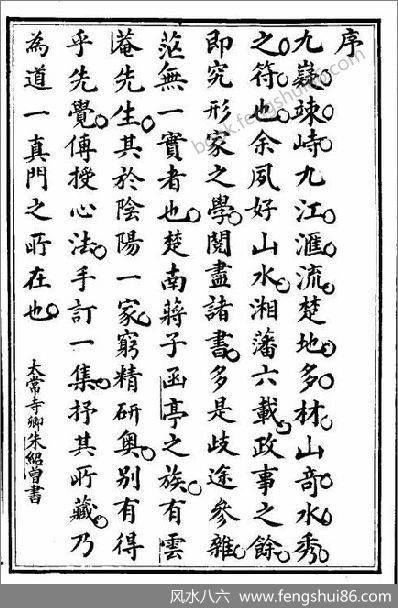 序
九嶷竦峙九江滙流楚地多材山奇水秀
之符也余夙好山水湘藩六載政事之餘
即究形家之學閱盡諸書多是歧途參雜
茫無一實者也楚南蔣子函亭之族有雲
菴先生其於陰陽一家窮精研奧別有得
乎先覺傳授心法手訂一集抒其所藏乃
為道一真門之所在也
太常寺卿朱紹曾書
book.fengshui86.com
风水八六 www.fengshui86.com